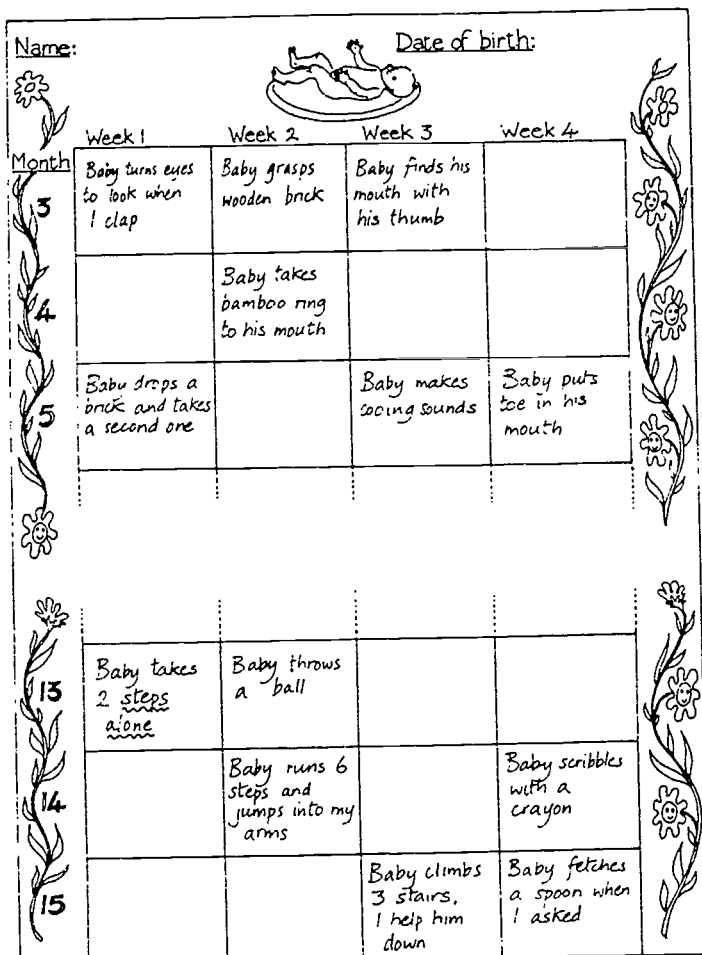 Name:
Date of birth:
Week 1
Week 2
Week 3
Week 4
Month
3
Baby turns eyes
to look when
I clap
Baby grasps
wooden brick
Baby finds his
mouth with
his thumb
4
Baby takes
bamboo ring
to his mouth
5
Baby drops a
brick and takes
a second one
Baby makes
cooing sounds
Baby puts
toe in his
mouth
13
Baby takes
2 steps
alone
Baby throws
a ball
14
Baby runs 6
steps and
jumps into my
arms
Baby scribbles
with a
crayon
15
Baby climbs
3 stairs,
I help him
down
Baby fetches
a spoon when
I asked